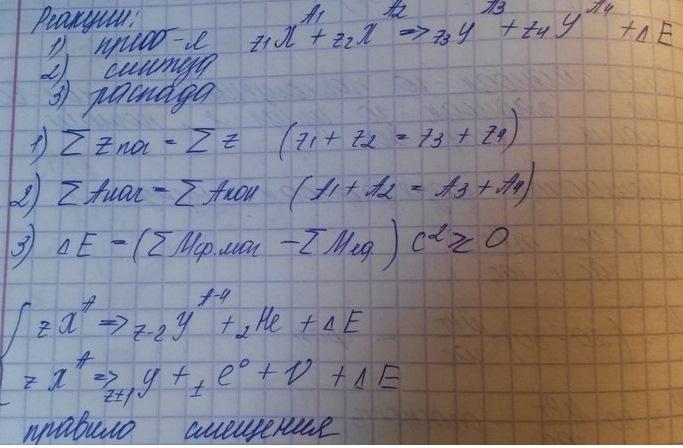 Реакции:
1) преоб-я z₁X^A₁ + z₂X^A₂ => z₃y^A₃ + z₄y^A₄ + ΔE
2) синтеза
3) распада
1) Σ Z нач = Σ z (z₁ + z₂ = z₃ + z₄)
2) Σ Aнач = Σ Aкон (A₁ + A₂ = A₃ + A₄)
3) ΔE = (Σ M − Σ M) c² ≥ 0
zX^A => z-2y^A-4 + ₂He + ΔE
zX^A => z±1y + ±e⁰ + ν + ΔE
правило смещения